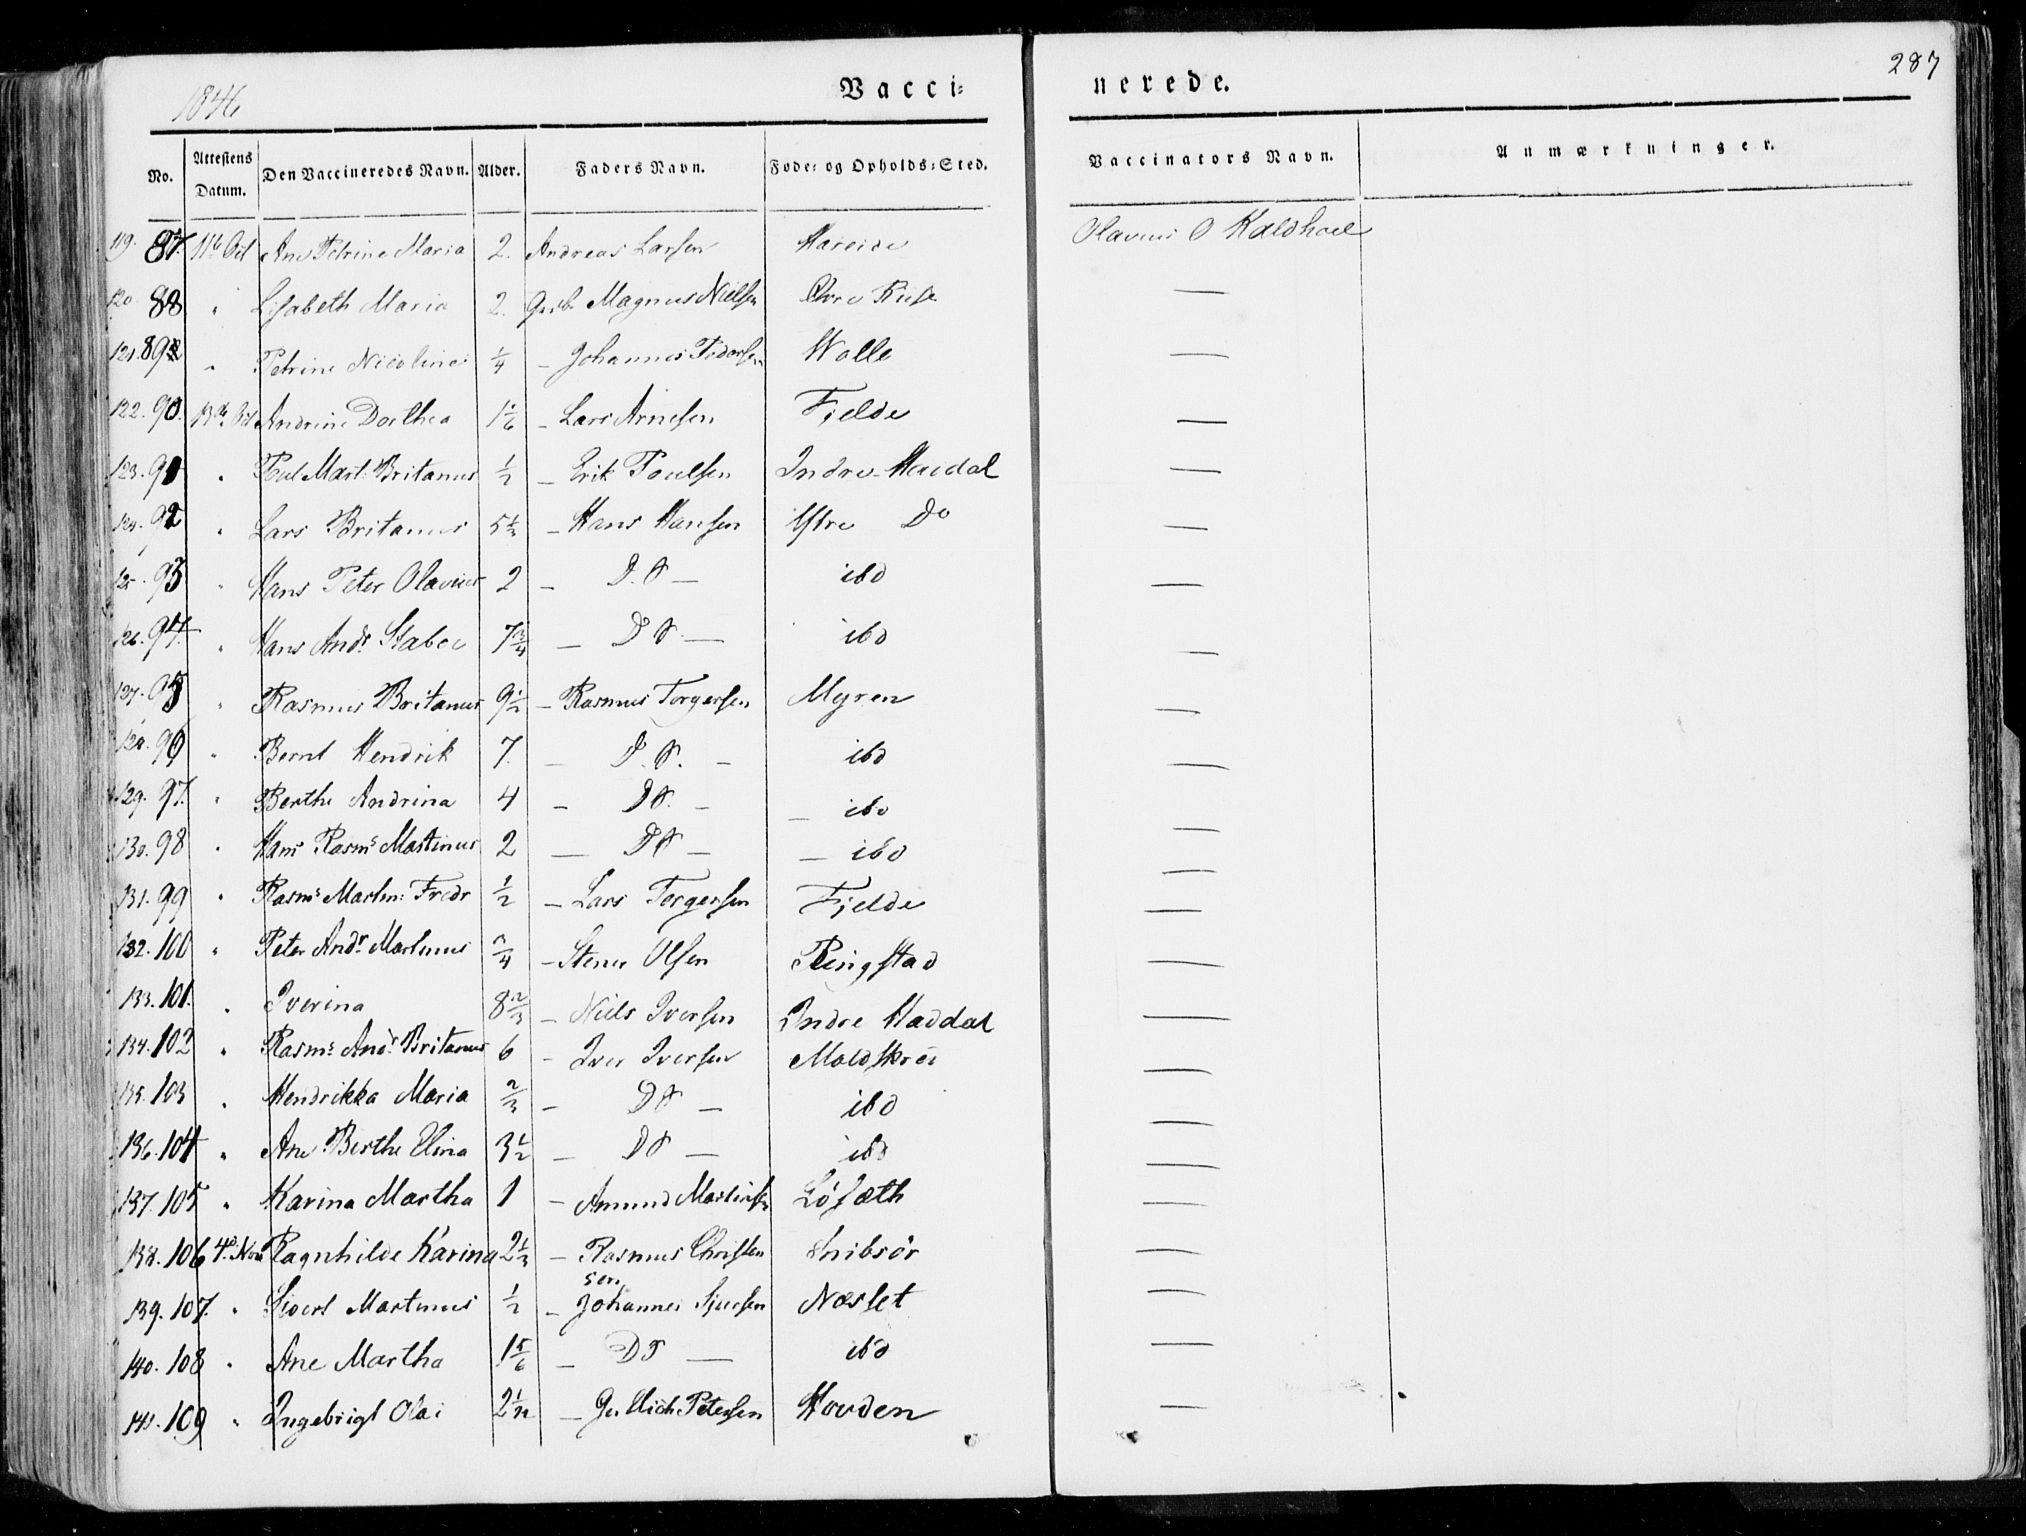 1846
Vacci-
nerede.
287
No.
Attestens Datum.
Den Vaccineredes Navn.
Alder.
Faders Navn.
Føde- og Opholds-Sted.
Vaccinators Navn.
Anmærkninger.
119. 87. 11te Oct Ane Petrine Maria 2. Andreas Larsen Hareide Olavus O Kaldhoel
120. 88 " Lisabeth Maria 2. Magnus Nielsen Øvre Riise —
121. 89 " Petrine Nicoline 1/4 — Johannes Pedersen Wolle —
122. 90. 13de Oct Andrine Dorthea 1 1/6 — Lars Arnesen Fjelde —
123. 91 " Poul Mart: Britanus 1/2 — Erik Poulsen Indre Haddal —
124. 92 " Lars Britanus 5 1/2 — Hans Hansen Ystre Do —
125. 93 " Hans Peter Olavus 2 — D.S — ibd —
126. 94. " Hans Andr Staboe 7 3/4 — D S — ibd —
127. 95 " Rasmus Britanus 9 1/2 — Rasmus Torgersen Myren —
128. 96 " Bernt Hendrik 7. — D.S. — ibd —
129. 97. " Berthe Andrina 4 — DS. — — ibd —
130. 98 " Hans Rasms Martinus 2 — DS — — ibd —
131. 99 " Rasms Martin: Fredr 1/2 — Lars Torgersen Fjelde —
132. 100 " Peter Andr Martinus 3/4 — Stener Olsen Ringstad —
133. 101. " Iverina 8 2/3 — Niels Iversen Indre Haddal —
134. 102 " Rasms Andr Britanus 6 — Iver Iversen Moldskrei —
135. 103 " Hendrikka Maria 2/3 — DS — ibd —
136. 104 " Ane Berthe Elina 3 1/2 — DS — ibd —
137. 105 " Karina Martha 1 — Amund Martinsen Løsæth —
138. 106 4de Nov Ragnhilde Karina 2 1/3 — Rasmus Christensen Snibsør —
139. 107. " Sivert Martinus 1/2 — Johannes Sjursen Næsset —
140. 108 " Ane Martha 1 5/6 — DS — ibd —
141. 109 " Ingebrigt Olai 2 1/12 — Petersen Hovden —